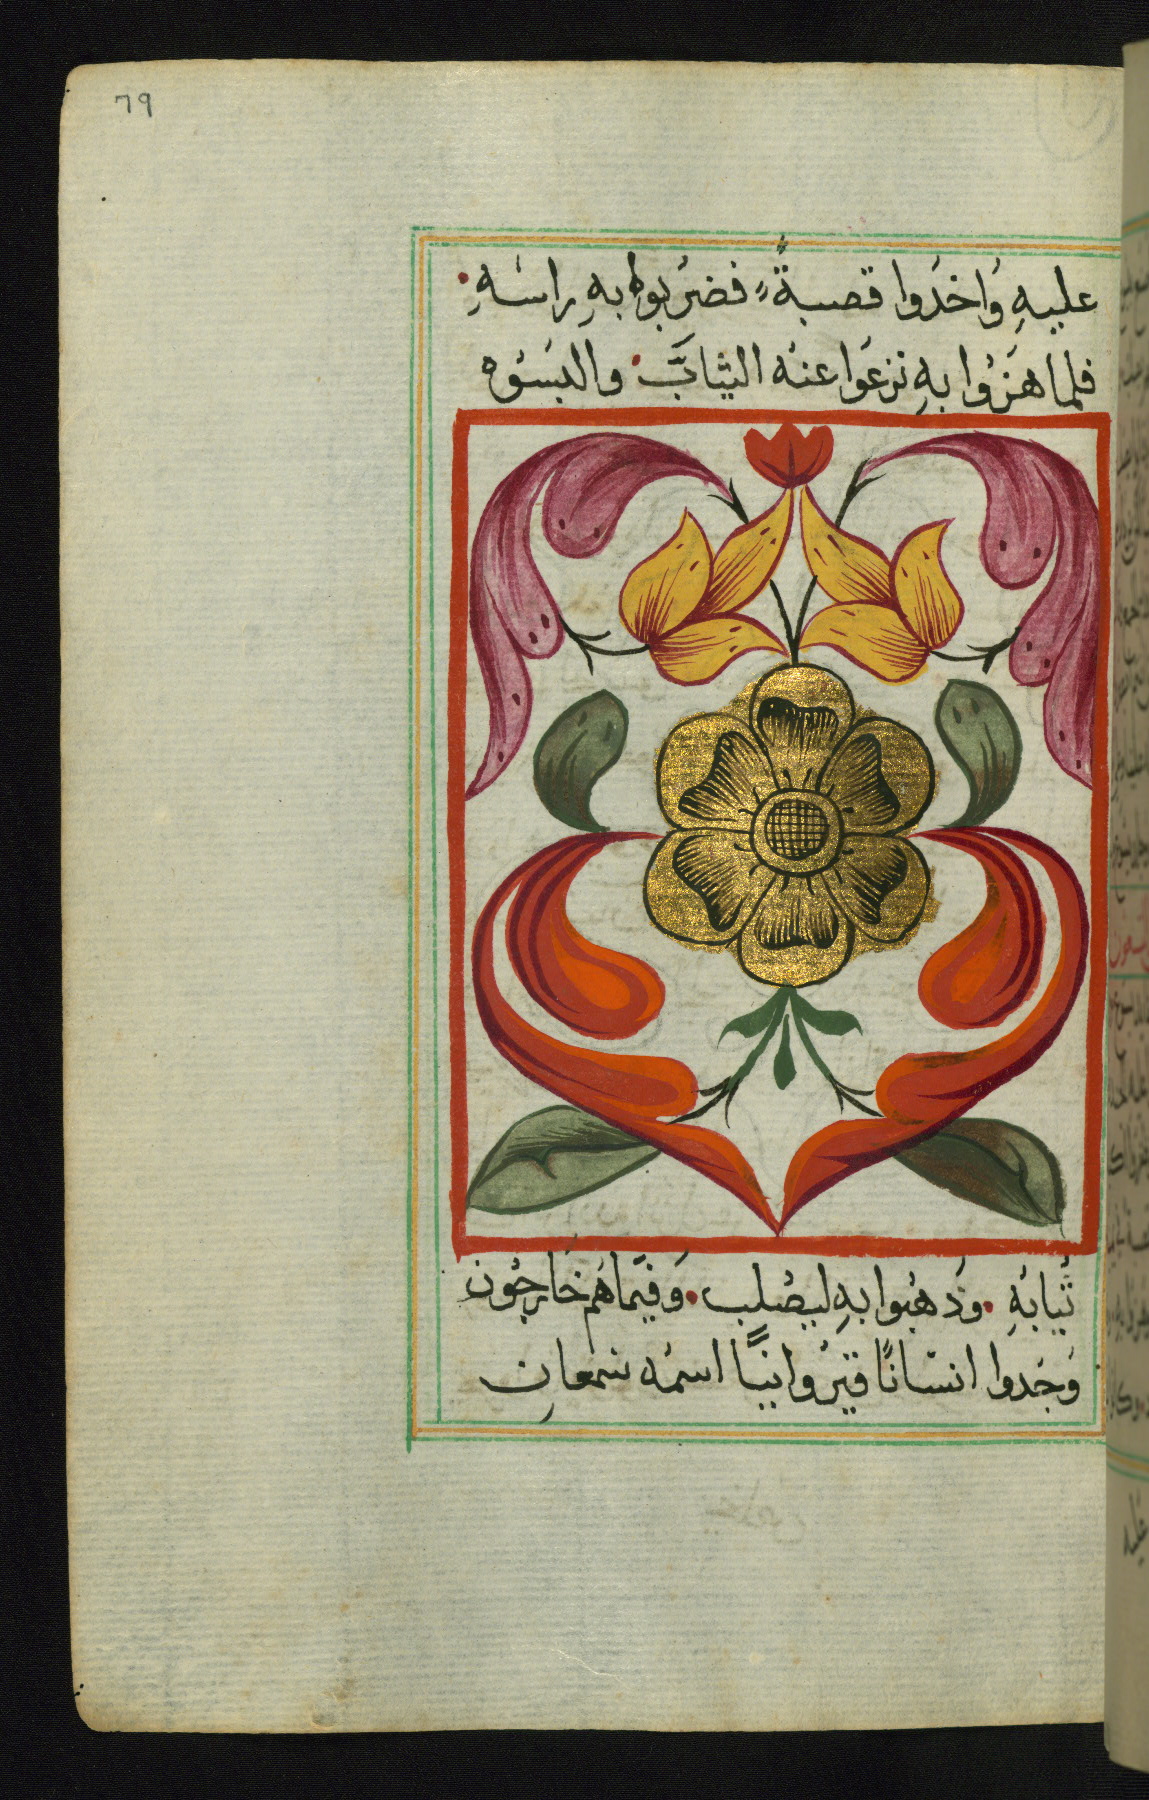 79
عليهِ وَاخدَوا قصبةً فضرَبوه بهِ راسَهِ
فلما هَزوُا بهِ نزعَوا عنهُ الثيابَّ والبسَوُه
ثُيابهُِ ودَهبُوا بهِ ليصُلب وَفيَما هَم خارجُون
وَجَدوا انسَانًا قيَروانيًا اسمُه سمعَان
عليه